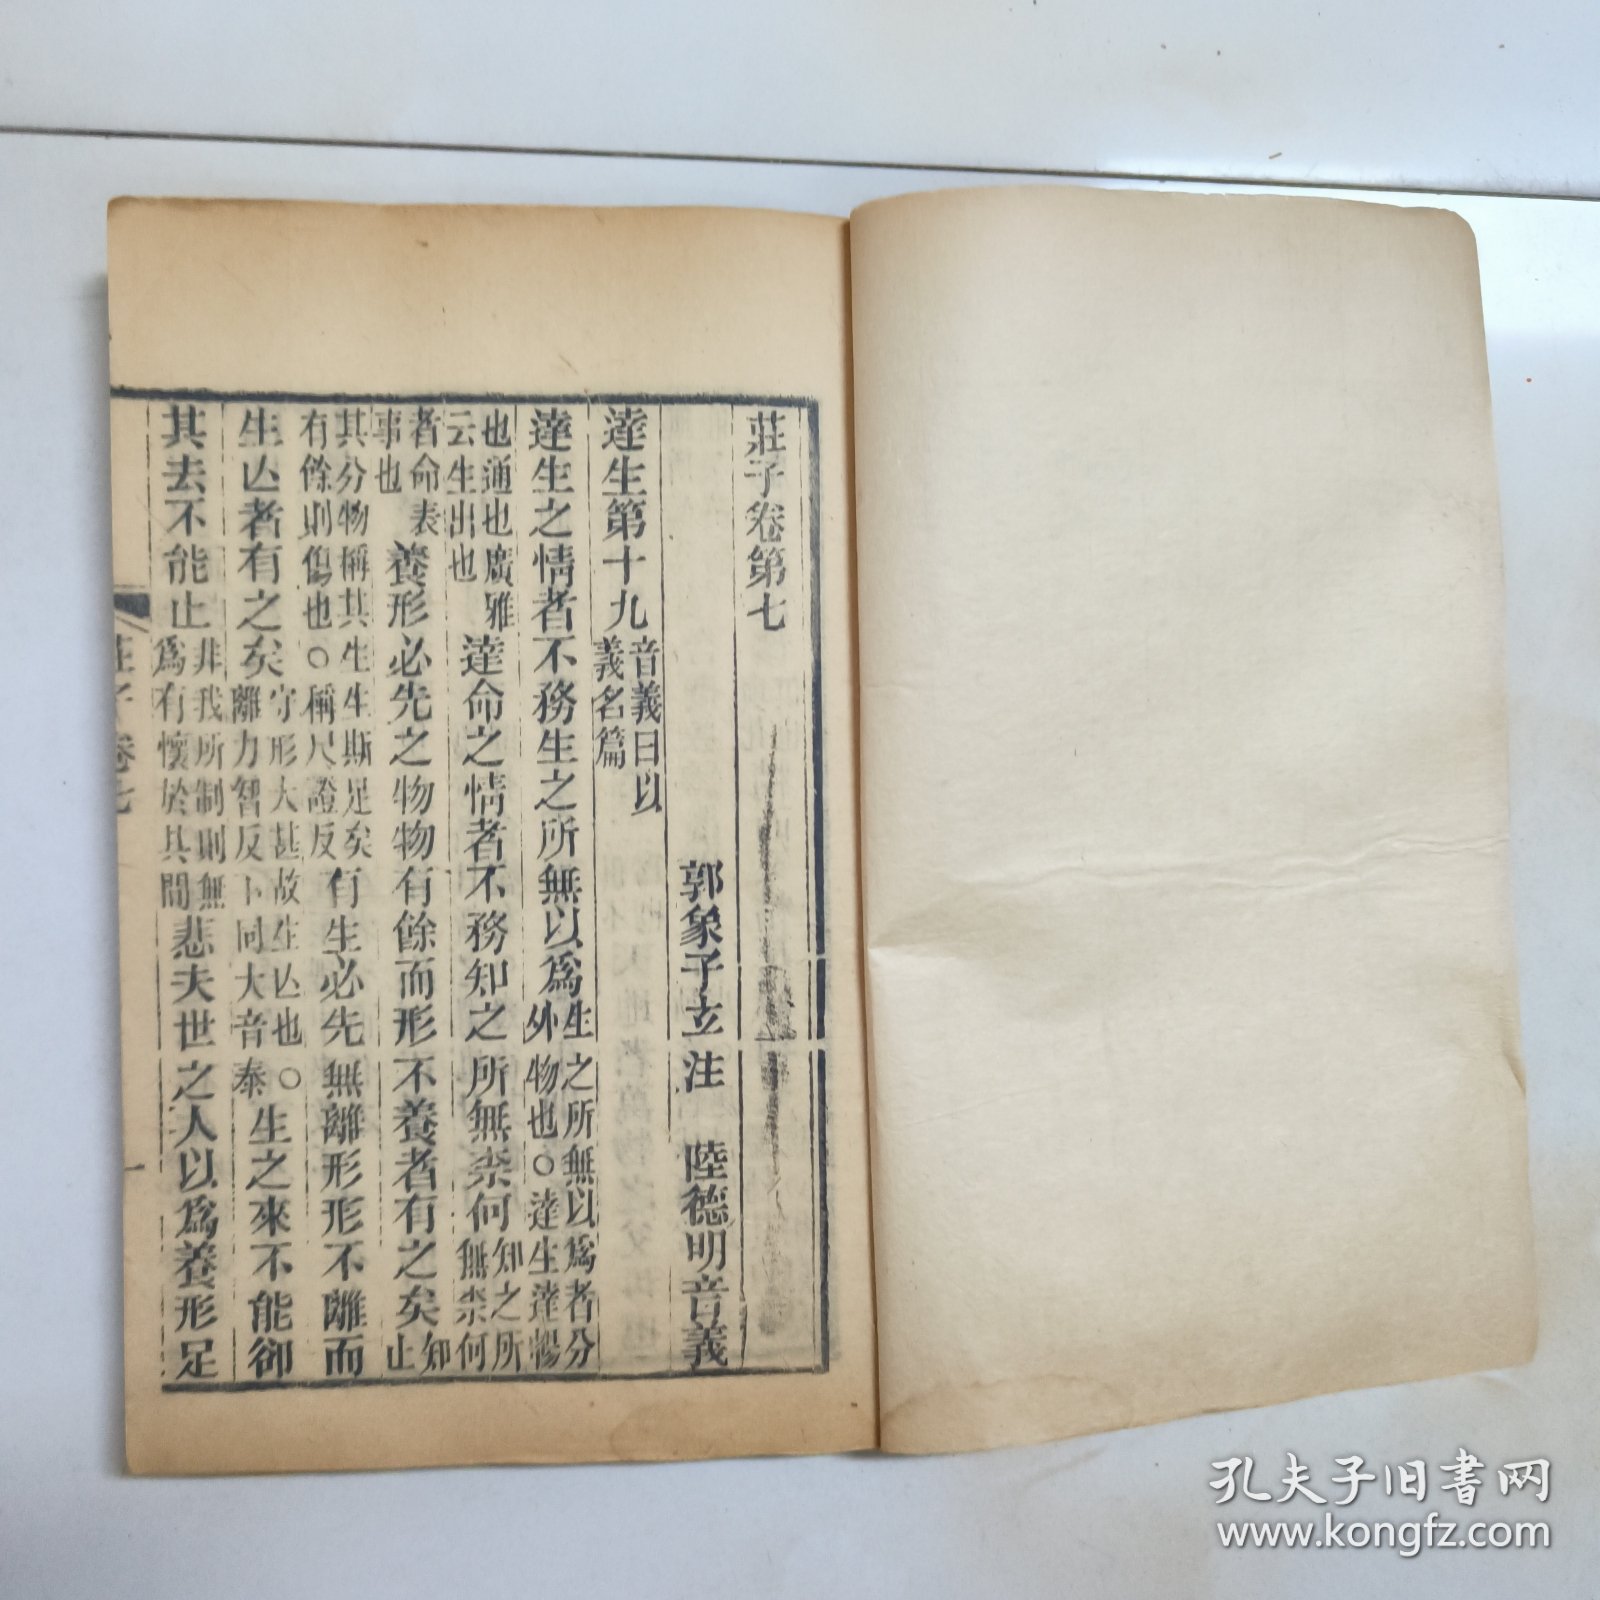 莊子卷第七
郭象子玄注　陸德明音義
達生第十九音義曰以義名篇
達生之情者不務生之所無以爲生之所無以爲者分外物也○達生達暢
也通也廣雅云生出也達命之情者不務知之所無柰何知之所無柰何
者命表事也養形必先之物物有餘而形不養者有之矣知止
其分物稱其生生斯足矣有餘則傷也○稱尺證反有生必先無離形形不離而
生亾者有之矣守形大甚故生亾也○離力智反下同大音泰生之來不能卻
其去不能止非我所制則無爲有懷於其間悲夫世之人以爲養形足
莊子卷七
一
孔夫子旧书网
www.kongfz.com